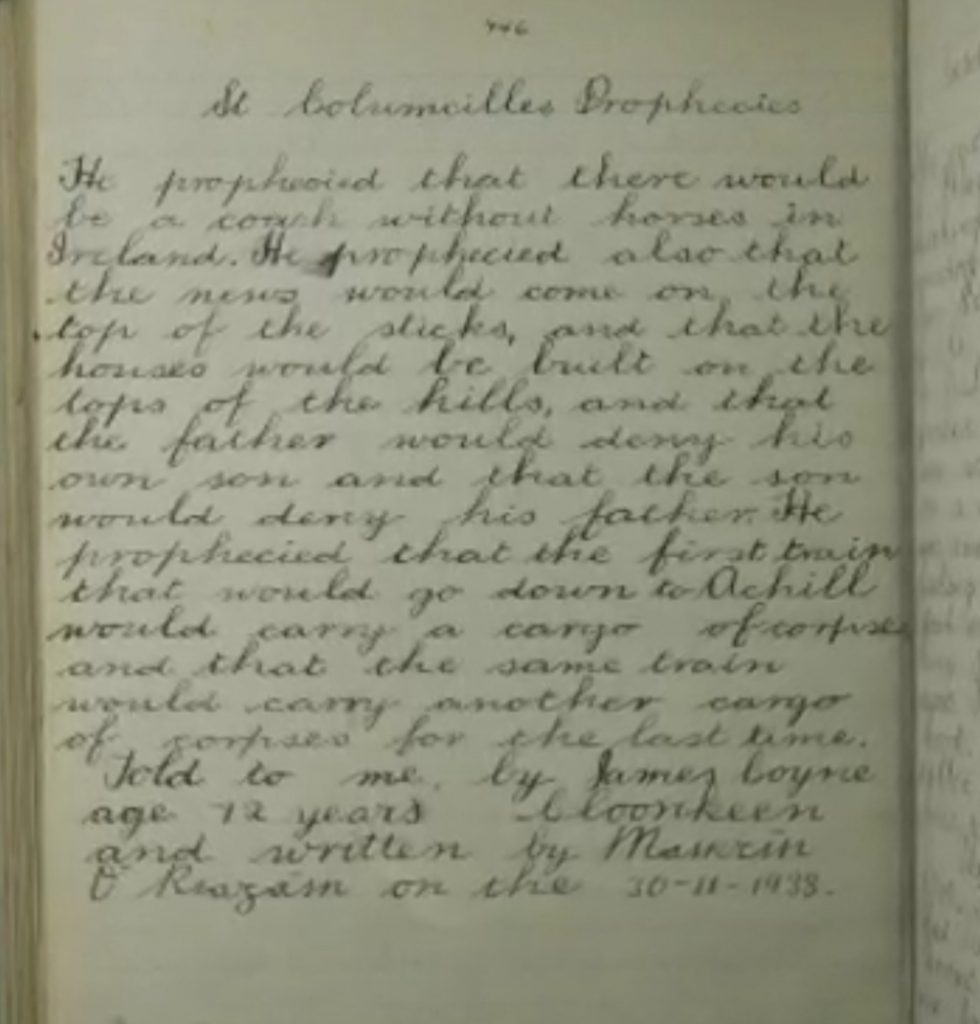 446
St Columcilles Prophecies
He prophecied that there would
be a coach without horses in
Ireland. He prophecied also that
the news would come on the
top of the sticks, and that the
houses would be built on the
tops of the hills, and that
the father would deny his
own son and that the son
would deny his father. He
prophecied that the first train
that would go down to Achill
would carry a cargo of corpse
and that the same train
would carry another cargo
of corpses for the last time.
Told to me by James Coyne
age 72 years Cloonkeen
and written by
on the 30-11-1938.